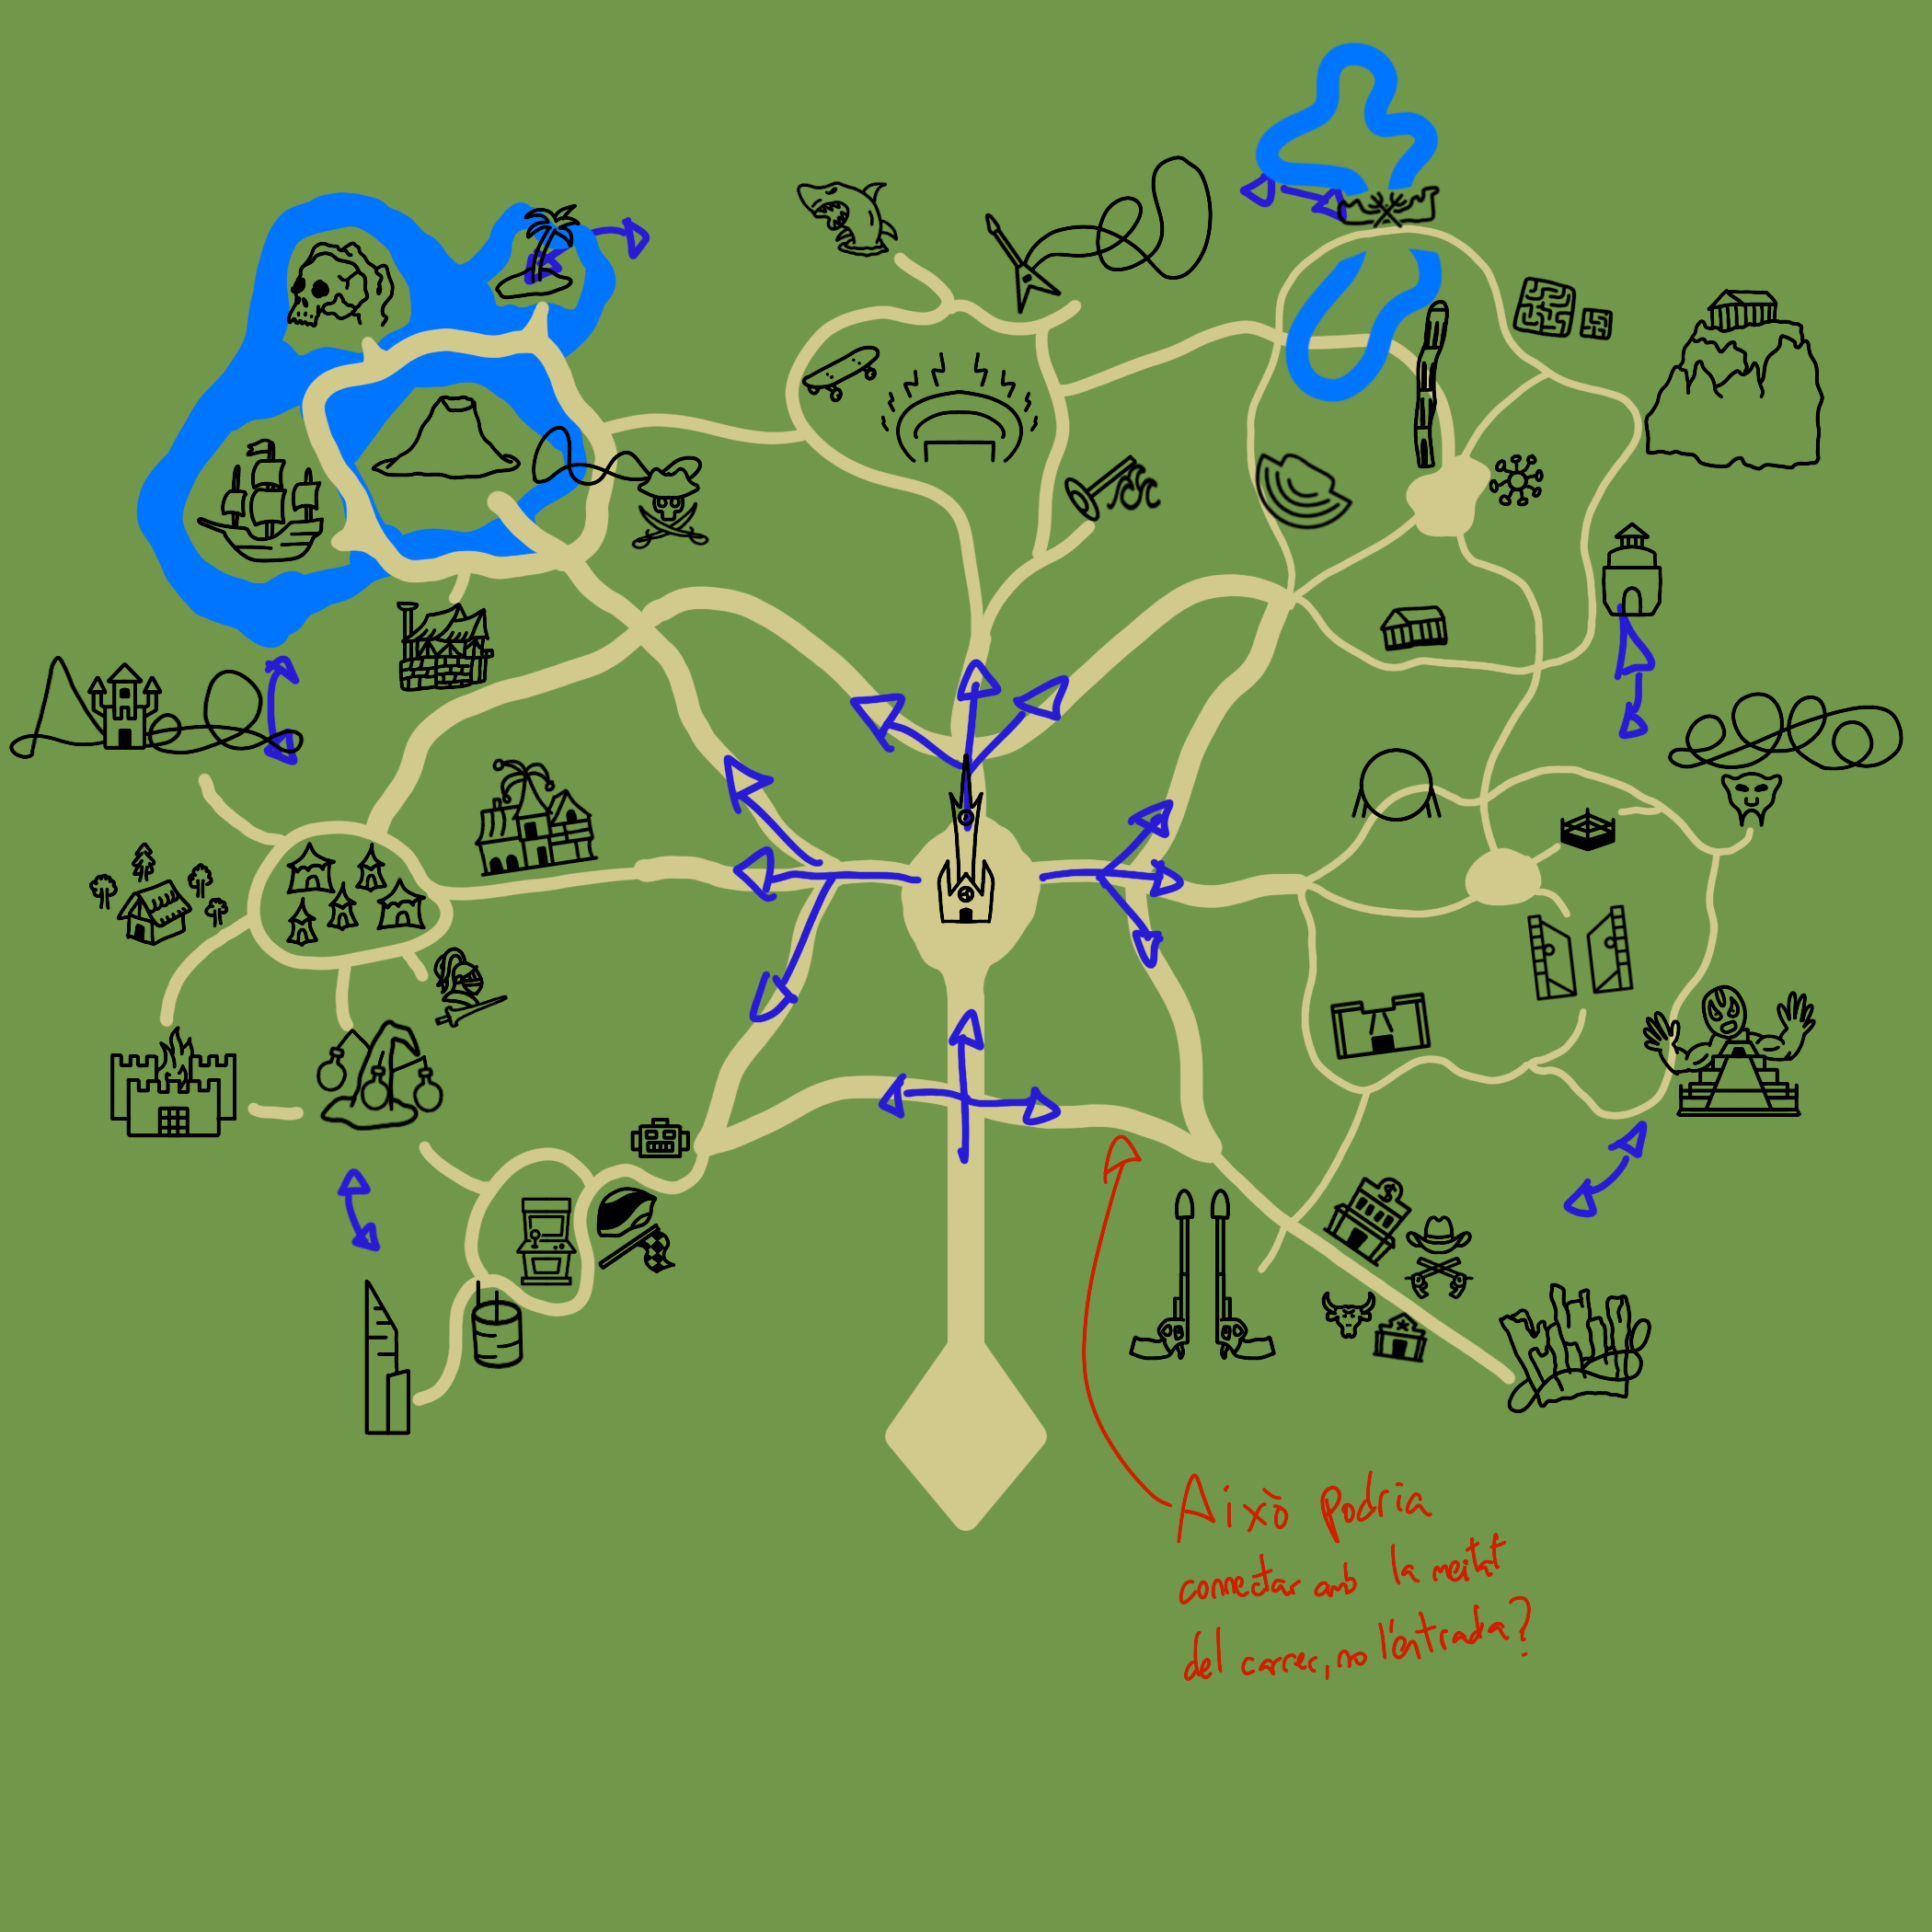 Això podria
connectar amb la meitat
del carrer, no l'entrada?